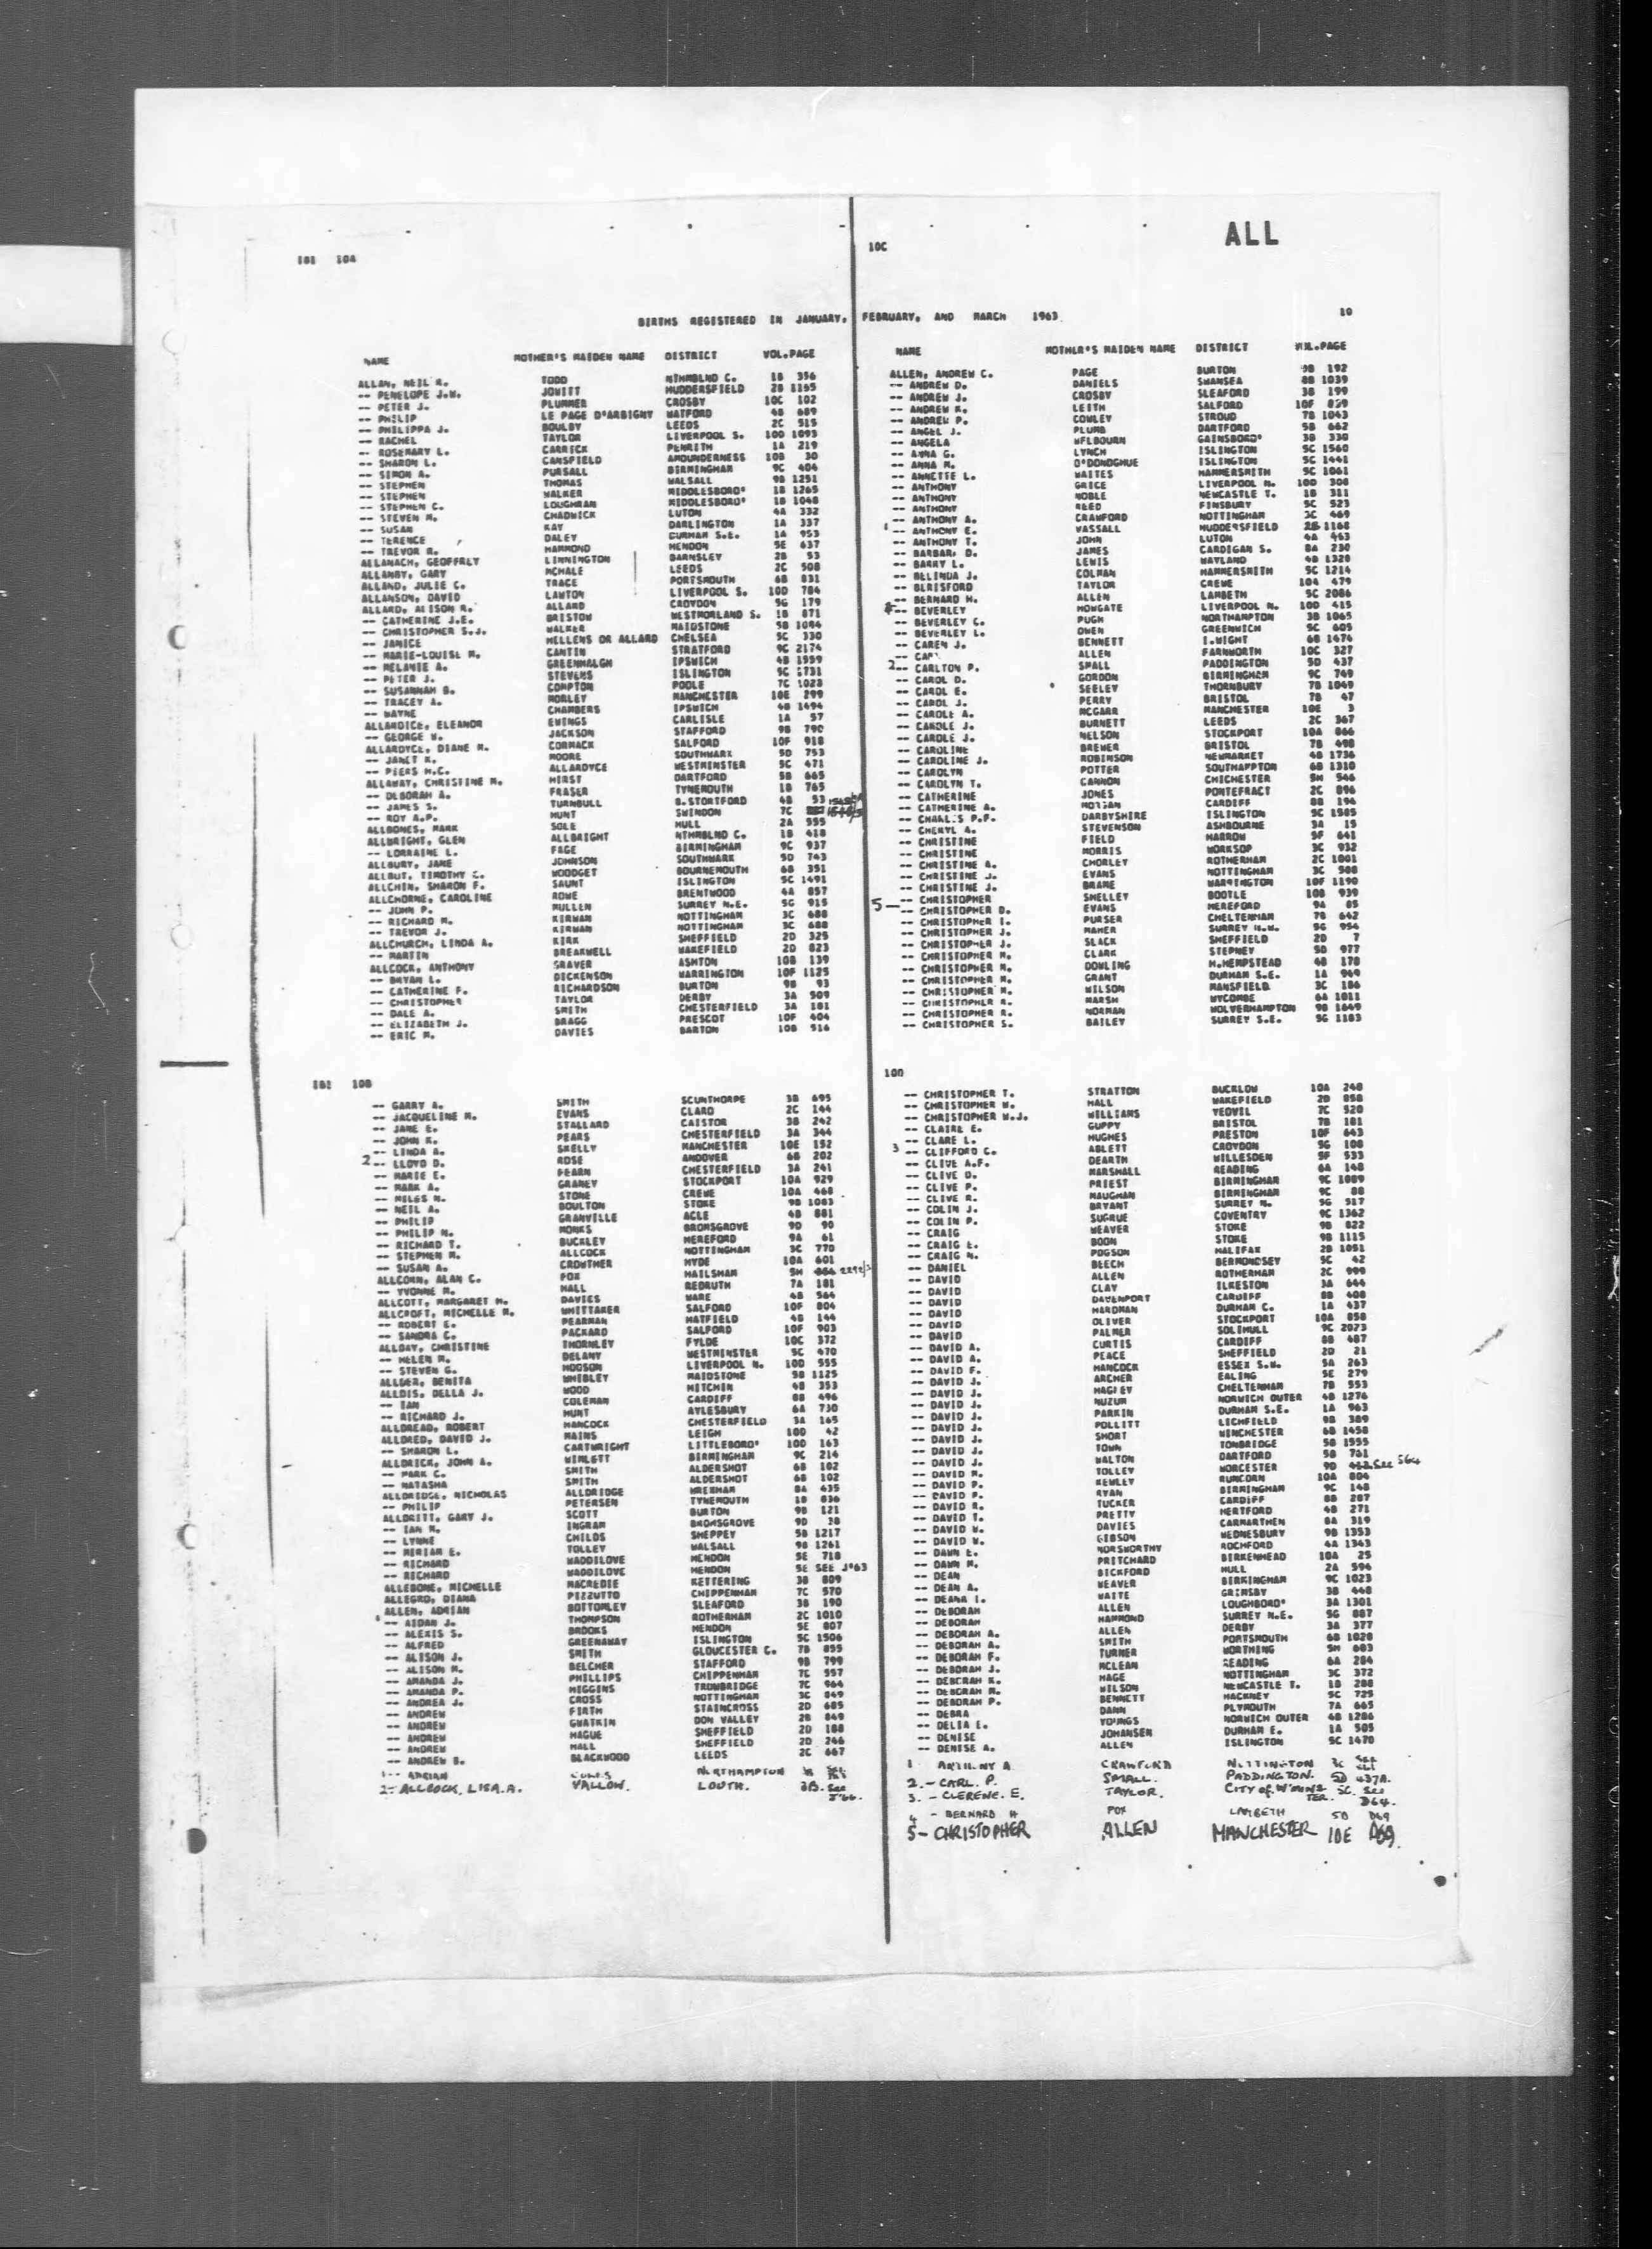 ALL
181 10A
10C
BIRTHS REGISTERED IN JANUARY, FEBRUARY, AND MARCH 1963 10
NAME MOTHER'S MAIDEN NAME DISTRICT VOL.PAGE
ALLAN, NEIL R. TODD NTHMBLND C. 1B 356
-- PENELOPE J.W. JOWITT HUDDERSFIELD 2B 1165
-- PETER J. PLUMMER CROSBY 10C 102
-- PHILIP LE PAGE D'ARBIGNY WATFORD 4B 689
-- PHILIPPA J. BOULBY LEEDS 2C 515
-- RACHEL TAYLOR LIVERPOOL S. 10D 1093
-- ROSEMARY L. CARRICK PENRITH 1A 219
-- SHARON L. CANSFIELD AMOUNDERNESS 10B 30
-- SIMON A. PURSALL BIRMINGHAM 9C 404
-- STEPHEN THOMAS WALSALL 9B 1251
-- STEPHEN WALKER MIDDLESBORO' 1B 1265
-- STEPHEN C. LOUGHRAN MIDDLESBORO' 1B 1048
-- STEVEN M. CHADWICK LUTON 4A 332
-- SUSAN KAY DARLINGTON 1A 337
-- TERENCE DALEY DURHAM S.E. 1A 953
-- TREVOR R. HAMMOND HENDON 5E 637
ALLANACH, GEOFFREY LINNINGTON BARNSLEY 2B 53
ALLANBY, GARY MCHALE LEEDS 2C 508
ALLAND, JULIE C. TRACE PORTSMOUTH 6B 831
ALLANSON, DAVID LAWTON LIVERPOOL S. 10D 784
ALLARD, ALISON R. ALLARD CROYDON 5G 179
-- CATHERINE J.E. BRISTOW WESTMORLAND S. 1B 871
-- CHRISTOPHER S.J. WALKER MAIDSTONE 5B 1094
-- JANICE HELLENS OR ALLARD CHELSEA 5C 330
-- MARIE-LOUISE M. CANTIN STRATFORD 9C 2174
-- MELANIE A. GREENHALGH IPSWICH 4B 1559
-- PETER J. STEVENS ISLINGTON 5C 1731
-- SUSANNAH B. COMPTON POOLE 7C 1023
-- TRACEY A. MORLEY MANCHESTER 10E 299
-- WAYNE CHAMBERS IPSWICH 4B 1494
ALLARDICE, ELEANOR EWINGS CARLISLE 1A 57
-- GEORGE W. JACKSON STAFFORD 9B 790
ALLARDYCE, DIANE M. CORMACK SALFORD 10F 918
-- JANET K. MOORE SOUTHWARK 5D 753
-- PIERS H.C. ALLARDYCE WESTMINSTER 5C 471
ALLAWAY, CHRISTINE M. HIRST DARTFORD 5B 665
-- DEBORAH A. FRASER TYNEMOUTH 1B 765
-- JAMES S. TURNBULL B.STORTFORD 4B 53
-- ROY A.P. HUNT SWINDON 7C
ALLBONES, MARK SOLE HULL 2A 555
ALLBRIGHT, GLEN ALLBRIGHT NTHMBLND C. 1B 418
-- LORRAINE L. PAGE BIRMINGHAM 9C 937
ALLBURY, JANE JOHNSON SOUTHWARK 5D 743
ALLBUT, TIMOTHY C. WOODGET BOURNEMOUTH 6B 351
ALLCHIN, SHARON F. SAUNT ISLINGTON 5C 1491
ALLCHORNE, CAROLINE ROWE BRENTWOOD 4A 857
-- JOHN P. MULLEN SURREY N.E. 5G 915
-- RICHARD M. KIRWAN NOTTINGHAM 3C 688
-- TREVOR J. KIRWAN NOTTINGHAM 3C 688
ALLCHURCH, LINDA A. KIRK SHEFFIELD 2D 325
-- MARTIN BREAKWELL WAKEFIELD 2D 823
ALLCOCK, ANTHONY GRAVER ASHTON 10B 139
-- BRYAN L. DICKENSON WARRINGTON 10F 1125
-- CATHERINE F. RICHARDSON BURTON 9B 93
-- CHRISTOPHER TAYLOR DERBY 3A 509
-- DALE A. SMITH CHESTERFIELD 3A 181
-- ELIZABETH J. BRAGG PRESCOT 10F 404
-- ERIC M. DAVIES BARTON 10B 516
181 10B
-- GARRY A. SMITH SCUNTHORPE 3B 695
-- JACQUELINE M. EVANS CLARO 2C 144
-- JANE E. STALLARD CAISTOR 3B 242
-- JOHN K. PEARS CHESTERFIELD 3A 344
-- LINDA A. SKELLY MANCHESTER 10E 152
2 -- LLOYD D. ROSE ANDOVER 6B 202
-- MARIE E. FEARN CHESTERFIELD 3A 241
-- MARK A. GRANEY STOCKPORT 10A 929
-- MILES N. STONE CREWE 10A 468
-- NEIL A. BOULTON STOKE 9B 1083
-- PHILIP GRANVILLE ACLE 4B 881
-- PHILIP M. MONKS BROMSGROVE 9D 90
-- RICHARD T. BUCKLEY HEREFORD 9A 61
-- STEPHEN M. ALLCOCK NOTTINGHAM 3C 770
-- SUSAN A. CROWTHER HYDE 10A 601
ALLCORN, ALAN C. FOX HAILSHAM 5H
-- YVONNE M. HALL REDRUTH 7A 181
ALLCOTT, MARGARET M. DAVIES WARE 4B 564
ALLCROFT, MICHELLE M. WHITTAKER SALFORD 10F 804
-- ROBERT E. PEARMAN HATFIELD 4B 144
-- SANDRA C. PACKARD SALFORD 10F 903
ALLDAY, CHRISTINE THORNLEY FYLDE 10C 372
-- HELEN M. DELANY WESTMINSTER 5C 470
-- STEVEN G. HODSON LIVERPOOL N. 10D 555
ALLDER, BENITA WHIBLEY MAIDSTONE 5B 1125
ALLDIS, DELLA J. WOOD HITCHIN 4B 353
-- IAN COLEMAN CARDIFF 8B 496
-- RICHARD J. HUNT AYLESBURY 6A 730
ALLDREAD, ROBERT HANCOCK CHESTERFIELD 3A 165
ALLDRED, DAVID J. MAINS LEIGH 10D 42
-- SHARON L. CARTWRIGHT LITTLEBORO' 10D 163
ALLDRICK, JOHN A. WINLETT BIRMINGHAM 9C 214
-- MARK C. SMITH ALDERSHOT 6B 102
-- NATASHA SMITH ALDERSHOT 6B 102
ALLDRIDGE, NICHOLAS ALLDRIDGE WREXHAM 8A 435
-- PHILIP PETERSEN TYNEMOUTH 1B 836
ALLDRITT, GARY J. SCOTT BURTON 9B 121
-- IAN M. INGRAM BROMSGROVE 9D 28
-- LYNNE CHILDS SHEPPEY 5B 1217
-- MIRIAM E. TOLLEY WALSALL 9B 1261
-- RICHARD WADDILOVE HENDON 5E 718
-- RICHARD WADDILOVE HENDON 5E SEE J'63
ALLEBONE, MICHELLE MACREDIE KETTERING 3B 809
ALLEGRO, DIANA PIZZUTTO CHIPPENHAM 7C 570
ALLEN, ADRIAN BOTTOMLEY SLEAFORD 3B 190
1 -- AIDAN J. THOMPSON ROTHERHAM 2C 1010
-- ALEXIS S. BROOKS HENDON 5E 807
-- ALFRED GREENAWAY ISLINGTON 5C 1506
-- ALISON J. SMITH GLOUCESTER C. 7B 855
-- ALISON M. BELCHER STAFFORD 9B 799
-- AMANDA J. PHILLIPS CHIPPENHAM 7C 557
-- AMANDA P. HIGGINS TROWBRIDGE 7C 964
-- ANDREA J. CROSS NOTTINGHAM 3C 849
-- ANDREW FIRTH STAINCROSS 2D 685
-- ANDREW GWATKIN DON VALLEY 2B 849
-- ANDREW HAGUE SHEFFIELD 2D 188
-- ANDREW HALL SHEFFIELD 2D 246
-- ANDREW B. BLACKWOOD LEEDS 2C 667
1 -- ADRIAN NORTHAMPTON 3B See
2 - ALLCOCK, LISA. A. YALLOW. LOUTH. 3B. See J'66.
NAME MOTHER'S MAIDEN NAME DISTRICT VOL.PAGE
ALLEN, ANDREW C. PAGE BURTON 9B 192
-- ANDREW D. DANIELS SWANSEA 8B 1039
-- ANDREW J. CROSBY SLEAFORD 3B 199
-- ANDREW K. LEITH SALFORD 10F 859
-- ANDREW P. COWLEY STROUD 7B 1043
-- ANGEL J. PLUMB DARTFORD 5B 662
-- ANGELA WELBOURN GAINSBORO' 3B 330
-- ANNA G. LYNCH ISLINGTON 5C 1560
-- ANNA M. O'DONOGHUE ISLINGTON 5C 1441
-- ANNETTE L. WAITES HAMMERSMITH 5C 1061
-- ANTHONY GRICE LIVERPOOL N. 10D 308
-- ANTHONY NOBLE NEWCASTLE T. 1B 311
-- ANTHONY REED FINSBURY 5C 523
-- ANTHONY A. CRAWFORD NOTTINGHAM 3C 469
1 -- ANTHONY E. VASSALL HUDDERSFIELD 2B 1168
-- ANTHONY T. JOHN LUTON 4A 463
-- BARBARA D. JAMES CARDIGAN S. 8A 230
-- BARRY L. LEWIS WAYLAND 4B 1328
-- BELINDA J. COLMAN HAMMERSMITH 5C 1214
-- BERISFORD TAYLOR CREWE 10A 479
-- BERNARD H. ALLEN LAMBETH 5C 2086
4 -- BEVERLEY HOWGATE LIVERPOOL N. 10D 415
-- BEVERLEY C. PUGH NORTHAMPTON 3B 1065
-- BEVERLEY L. OWEN GREENWICH 5C 605
-- CAREN J. BENNETT I.WIGHT 6B 1474
-- CARL ALLEN FARNWORTH 10C 327
2 -- CARLTON P. SMALL PADDINGTON 5D 437
-- CAROL D. GORDON BIRMINGHAM 9C 749
-- CAROL E. SEELEY THORNBURY 7B 1049
-- CAROL J. PERRY BRISTOL 7B 47
-- CAROLE A. MCGARR MANCHESTER 10E 3
-- CAROLE J. BURNETT LEEDS 2C 367
-- CAROLE J. NELSON STOCKPORT 10A 866
-- CAROLINE BREWER BRISTOL 7B 498
-- CAROLINE J. ROBINSON NEWMARKET 4B 1736
-- CAROLYN POTTER SOUTHAMPTON 6B 1310
-- CAROLYN T. CANNON CHICHESTER 5H 546
-- CATHERINE JONES PONTEFRACT 2C 896
-- CATHERINE A. MORGAN CARDIFF 8B 194
-- CHARLES P.F. DARBYSHIRE ISLINGTON 5C 1505
-- CHERYL A. STEVENSON ASHBOURNE 3A 15
-- CHRISTINE FIELD HARROW 5F 641
-- CHRISTINE MORRIS WORKSOP 3C 932
-- CHRISTINE A. CHORLEY ROTHERHAM 2C 1001
-- CHRISTINE J. EVANS NOTTINGHAM 3C 508
-- CHRISTINE J. BRAME WARRINGTON 10F 1190
-- CHRISTOPHER SHELLEY BOOTLE 10B 939
5 -- CHRISTOPHER D. EVANS HEREFORD 9A 85
-- CHRISTOPHER I. PURSER CHELTENHAM 7B 642
-- CHRISTOPHER J. MAHER SURREY N.W. 5G 954
-- CHRISTOPHER J. SLACK SHEFFIELD 2D 7
-- CHRISTOPHER M. CLARK STEPNEY 5D 977
-- CHRISTOPHER M. DOWLING H.HEMPSTEAD 4B 178
-- CHRISTOPHER M. GRANT DURHAM S.E. 1A 949
-- CHRISTOPHER N. WILSON MANSFIELD 3C 186
-- CHRISTOPHER R. MARSH WYCOMBE 6A 1011
-- CHRISTOPHER R. NORMAN WOLVERHAMPTON 9B 1649
-- CHRISTOPHER S. BAILEY SURREY S.E. 5G 1183
10D
-- CHRISTOPHER T. STRATTON BUCKLOW 10A 248
-- CHRISTOPHER W. HALL WAKEFIELD 2D 858
-- CHRISTOPHER W.J. WILLIAMS YEOVIL 7C 520
-- CLAIRE E. GUPPY BRISTOL 7B 181
-- CLARE L. HUGHES PRESTON 10F 643
3 -- CLIFFORD C. ABLETT CROYDON 5G 108
-- CLIVE A.F. DEARTH WILLESDEN 5F 533
-- CLIVE D. MARSHALL READING 6A 148
-- CLIVE P. PRIEST BIRMINGHAM 9C 1089
-- CLIVE R. MAUGHAN BIRMINGHAM 9C 88
-- COLIN J. BRYANT SURREY N. 5G 517
-- COLIN P. SUGRUE COVENTRY 9C 1362
-- CRAIG WEAVER STOKE 9B 822
-- CRAIG E. BOON STOKE 9B 1115
-- CRAIG N. POGSON HALIFAX 2B 1051
-- DANIEL BEECH BERMONDSEY 5C 42
-- DAVID ALLEN ROTHERHAM 2C 999
-- DAVID CLAY ILKESTON 3A 644
-- DAVID DAVENPORT CARDIFF 8B 408
-- DAVID HARDMAN DURHAM C. 1A 437
-- DAVID OLIVER STOCKPORT 10A 858
-- DAVID PALMER SOLIHULL 9C 2073
-- DAVID A. CURTIS CARDIFF 8B 487
-- DAVID A. PEACE SHEFFIELD 2D 21
-- DAVID F. HANCOCK ESSEX S.W. 5A 263
-- DAVID J. ARCHER EALING 5E 279
-- DAVID J. HAGLEY CHELTENHAM 7B 553
-- DAVID J. NUZUM NORWICH OUTER 4B 1276
-- DAVID J. PARKIN DURHAM S.E. 1A 963
-- DAVID J. POLLITT LICHFIELD 9B 389
-- DAVID J. SHORT WINCHESTER 6B 1458
-- DAVID J. TOWN TONBRIDGE 5B 1555
-- DAVID J. WALTON DARTFORD 5B 761
-- DAVID M. TOLLEY WORCESTER 9D 412 See S64
-- DAVID P. KEWLEY RUNCORN 10A 804
-- DAVID P. RYAN BIRMINGHAM 9C 148
-- DAVID R. TUCKER CARDIFF 8B 287
-- DAVID T. PRETTY HERTFORD 4B 271
-- DAVID W. DAVIES CARMARTHEN 8A 319
-- DAVID W. GIBSON WEDNESBURY 9B 1353
-- DAWN E. NORSWORTHY ROCHFORD 4A 1343
-- DAWN M. PRITCHARD BIRKENHEAD 10A 25
-- DEAN BICKFORD HULL 2A 596
-- DEAN A. WEAVER BIRMINGHAM 9C 1023
-- DEANA I. WAITE GRIMSBY 3B 448
-- DEBORAH ALLEN LOUGHBORO' 3A 1301
-- DEBORAH HAMMOND SURREY N.E. 5G 887
-- DEBORAH A. ALLEN DERBY 3A 377
-- DEBORAH A. SMITH PORTSMOUTH 6B 1028
-- DEBORAH F. TURNER WORTHING 5H 603
-- DEBORAH J. MCLEAN READING 6A 284
-- DEBORAH K. HAGE NOTTINGHAM 3C 372
-- DEBORAH M. WILSON NEWCASTLE T. 1B 288
-- DEBORAH P. BENNETT HACKNEY 5C 725
-- DEBRA DANN PLYMOUTH 7A 665
-- DELIA E. YOUNGS NORWICH OUTER 4B 1286
-- DENISE JOHANSEN DURHAM E. 1A 505
-- DENISE A. ALLEN ISLINGTON 5C 1470
1 - ANTHONY A CRAWFORD 3C See
2. - CARL. P. SMALL. PADDINGTON. 5D 437A.
3. - CLERENE. E. TAYLOR. CITY of W'MINSTER. 5C. See D64.
4 - BERNARD H FOX LAMBETH 5D D69
5 - CHRISTOPHER ALLEN MANCHESTER 10E D69.